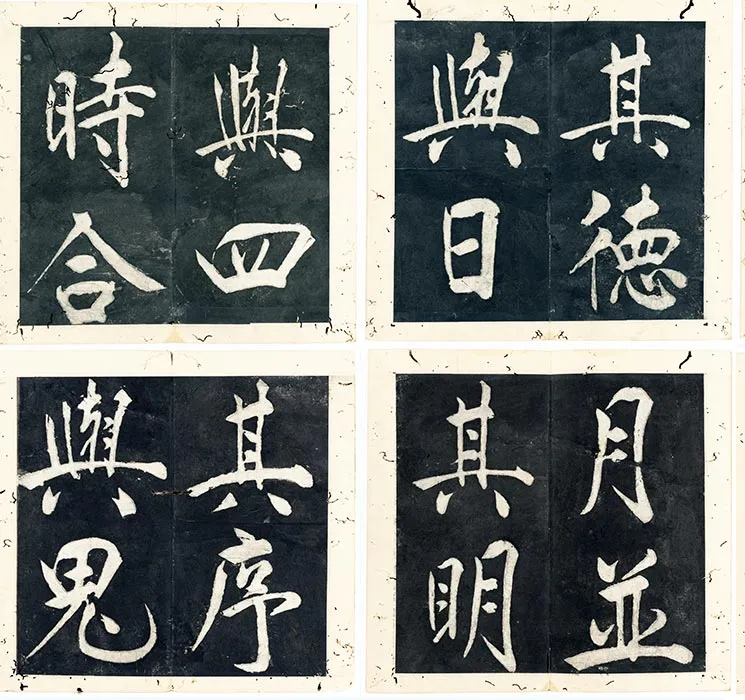 其德
與日
月並
其明
與四
時合
其序
與鬼